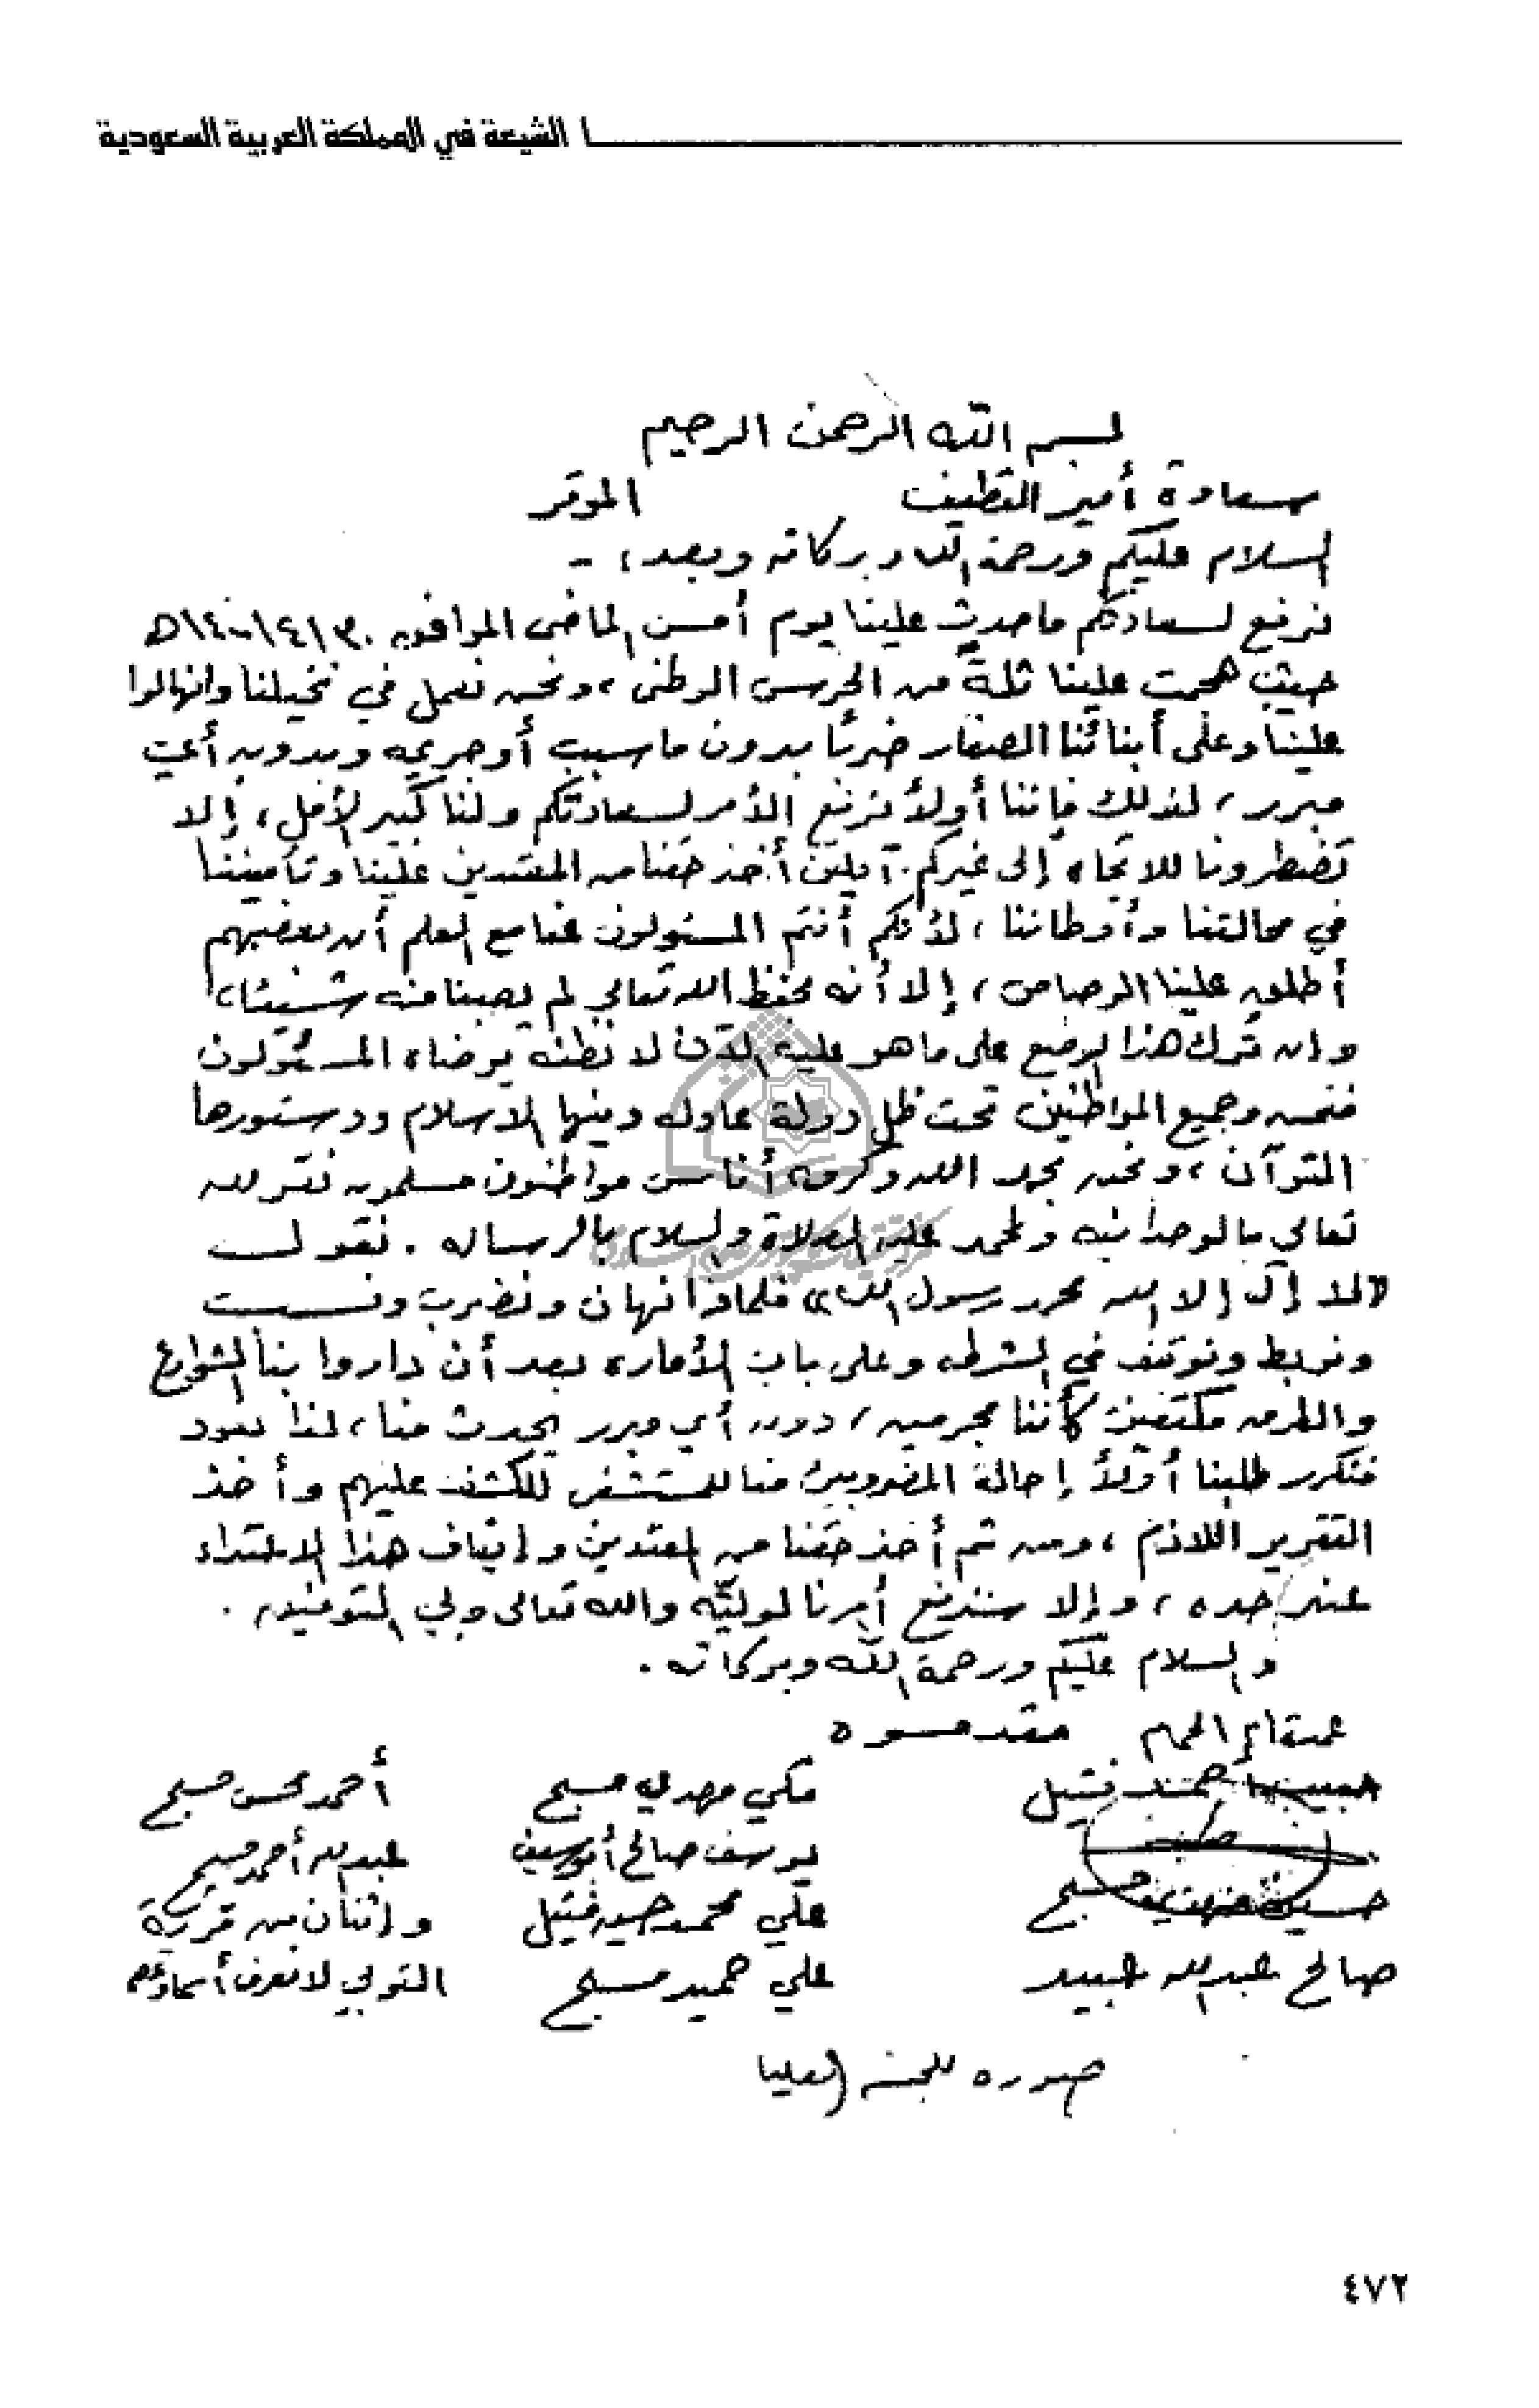 الشيعة في المملكة العربية السعودية
بسم الله الرحمن الرحيم
سعادة أمير القطيف الموقر
السلام عليكم ورحمة الله وبركاته وبعد ، -
نرفع لسعادتكم ماحدث علينا يوم أمس الماضي الموافق
حيث هجمت علينا ثلة من الحرس الوطني ، ونحن نعمل في نخيلنا وانهالوا
علينا وعلى أبنائنا الصغار ضربًا بدون ماسبب أوجريمه وبدون أي
مبرر ، لذلك فإننا أولاً نرفع الأمر لسعادتكم ولنا كبير الأمل ، إلا
تضطرونا للاتجاه إلى غيركم . آملين أخذ حقنا من المعتدين علينا وتأميننا
في محالتنا وأوطاننا ، لأنكم أنتم المسئولون عنا مع العلم أن بعضهم
أطلق علينا الرصاص ، إلا أنه بحفظ الله تعالى لم يصبنا منه شيئا ،
وان ترك هذا الوضع على ماهو عليه الآن لا نظنه يرضاه المسئولون
فنحن وجميع المواطنين تحت ظل دولة عادله دينها الاسلام ودستورها
القرآن ، ونحن بحمد الله وكرمه أناس مواطنون مسلمون نقر لله
تعالى بالوحدانيه ولمحمد عليه الصلاة والسلام بالرساله . نقول
«لا إله إلا الله محمد رسول الله» فلماذا نهان ونضرب ونسب
ونربط ونوقف في الشرطه وعلى باب الأماره بعد أن داروا بنا الشوارع
والطرق مكتفين كأننا مجرمين ، دون أي مبرر يحدث منا ، لذا نعود
فنكرر طلبنا أولاً إحالة المضروبين منا للمستشفى للكشف عليهم وأخذ
التقرير اللازم ، ومن ثم أخذ حقنا من المعتدين وإيقاف هذا الاعتداء
عند حده ، وإلا سنرفع أمرنا لوليّه والله تعالى ولي التوفيق .
والسلام عليكم ورحمة الله وبركاته .
مقدموه
فتيل مكي مهدي مسبح أحمد محسن مسبح
يوسف صالح أبوسيف عبدالله أحمد مسبح
حسين مسبح علي محمد حسين فتيل وإثنان من قرية
صالح عبدالله عبيد علي حميد مسبح التوبي لا نعرف أسماءهم
صوره للجنه العليا
٤٧٢